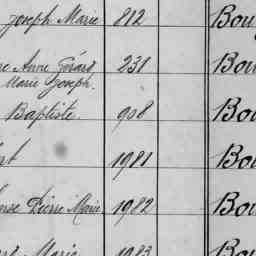 Joseph Marie 812 Bou
Anne Gérard 231 Bou
Marie Joseph.
Baptiste 908 Bou
1981 Bou
Pierre Marie 1982 Bou
Marie 1983 Bou